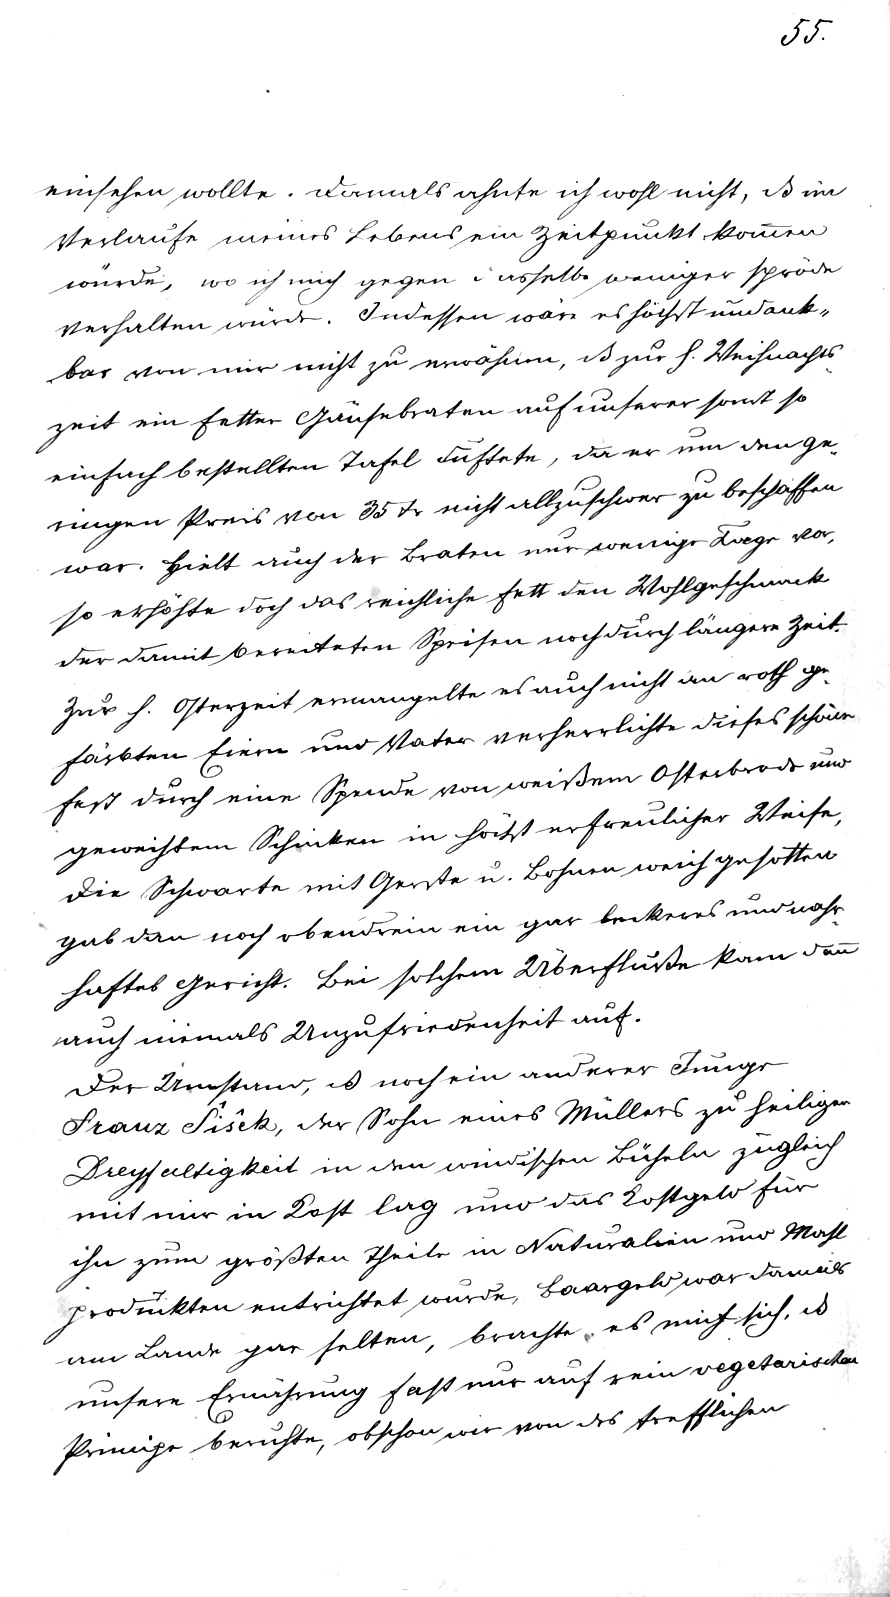 55.
einsehen wollte. Damals ahnte ich wohl nicht, dß im
Verlaufe meines Lebens ein Zeitpunkt kom̅en
würde, wo ich mich gegen dasselbe weniger spröde
verhalten würde. Indessen wäre es höchst undank„
bar von mir nicht zu erwähnen, dß zur h. Weihnachts„
zeit ein fetter Gänsebraten auf unserer sonst so
einfach bestellten Tafel duftete, da er um den ge„
ringen Preis von 35 kr nicht allzuschwer zu beschaffen
war. Hielt auch der Braten nur wenige Tage vor,
so erhöhte doch das reichliche Fett den Wohlgeschmack
der damit bereiteten Speisen noch durch längere Zeit.
Zur h. Osterzeit ermangelte es auch nicht an roth ge„
färbten Eiern und Vater verherrlichte dieses schöne
Fest durch eine Spende von weißem Osterbrode und
geweihtem Schinken in höchst erfreulicher Weise,
die Schwarte mit Gerste u. Bohnen weich gesotten
gab dan noch obendrein ein gar leckeres und nahr„
haftes Gericht. Bei solchem Überfluße kam den̅
auch niemals Unzufriedenheit auf.
Der Umstand, dß noch ein anderer Junge
Franz Šišek, der Sohn eines Müllers zu heiligen
Dreyfaltigkeit in den windischen Büheln zugleich
mit mir in Kost lag und das Kostgeld für
ihn zum größten Theile in Naturalien und Mahl
produkten entrichtet wurde, Baargeld war damals
am Lande gar selten, brachte es mit sich, dß
unsere Ernährung fast nur auf rein vegetarischem
Principe beruhte, obschon wir von des trefflichen